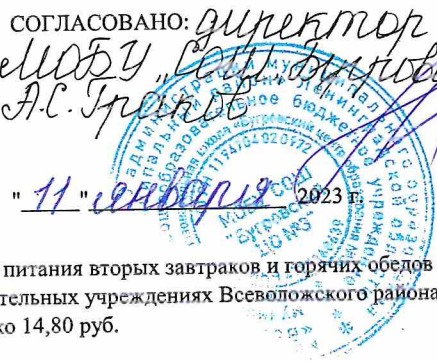 СОГЛАСОВАНО: директор
МОБУ "СОШ "Бугров
А.С. Граков
" 11 " января 2023 г.
питания вторых завтраков и горячих обедов
тельных учреждениях Всеволожского района
ко 14,80 руб.
МОБУ "СОШ
"Бугровс
ЦО №3